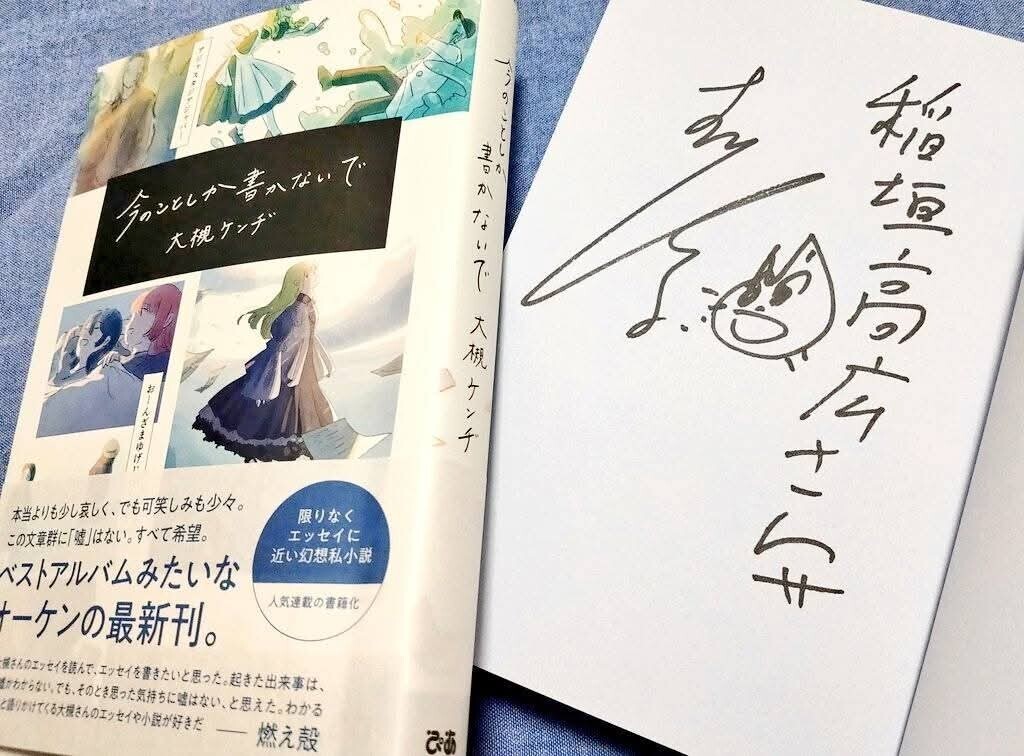 アジャスタジアジャパー
今のことしか書かないで
大槻ケンヂ
おーんざまゆげ
本当よりも少し哀しく、でも可笑しみも少々。
この文章群に「嘘」はない。すべて希望。
ベストアルバムみたいな
オーケンの最新刊。
限りなく
エッセイに
近い幻想私小説
人気連載の書籍化
大槻さんのエッセイを読んで、エッセイを書きたいと思った。起きた出来事は、
嘘かわからない。でも、そのとき思った気持ちに嘘はない、と思えた。わかる
と語りかけてくる大槻さんのエッセイや小説が好きだ
——燃え殻
今のことしか書かないで 大槻ケンヂ
ぴあ
稲垣高広さんへ